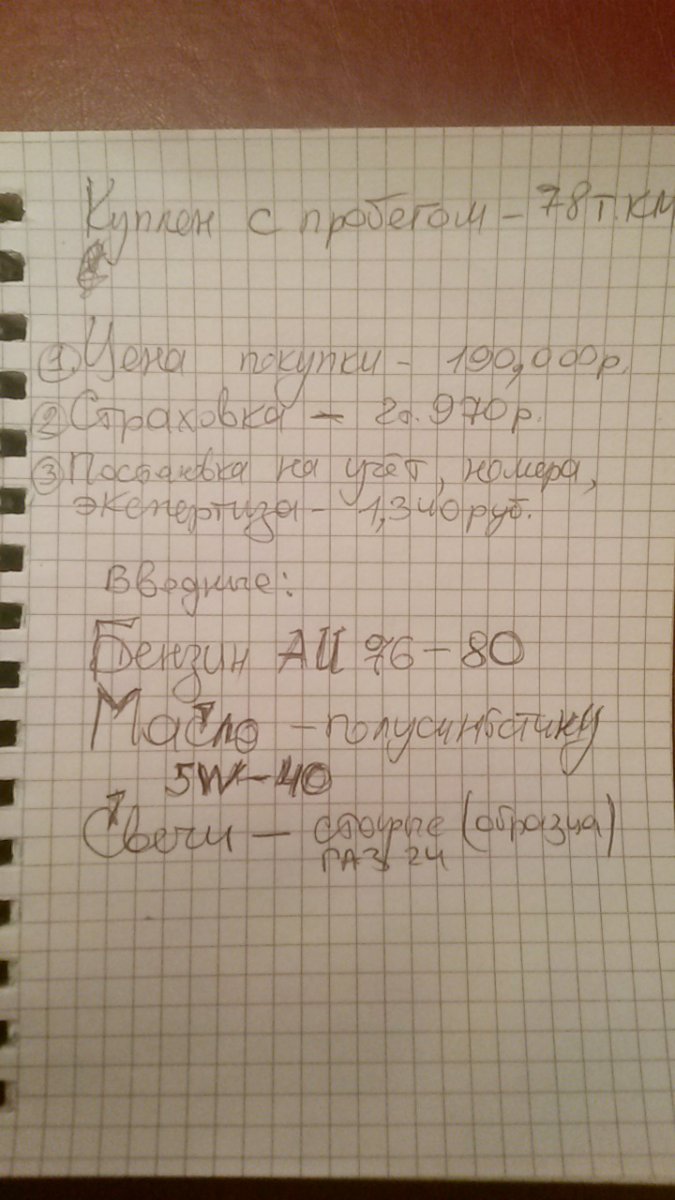 Куплен с пробегом - 78 т.км
① Цена покупки - 190,000р.
② Страховка - 2т.970р.
③ Постановка на учёт, номера,
экспертиза - 1,340 руб.
Вводные:
Бензин АИ 76-80
Масло - полусинтетику
5W-40
Свечи - старые (образца)
ГАЗ 24